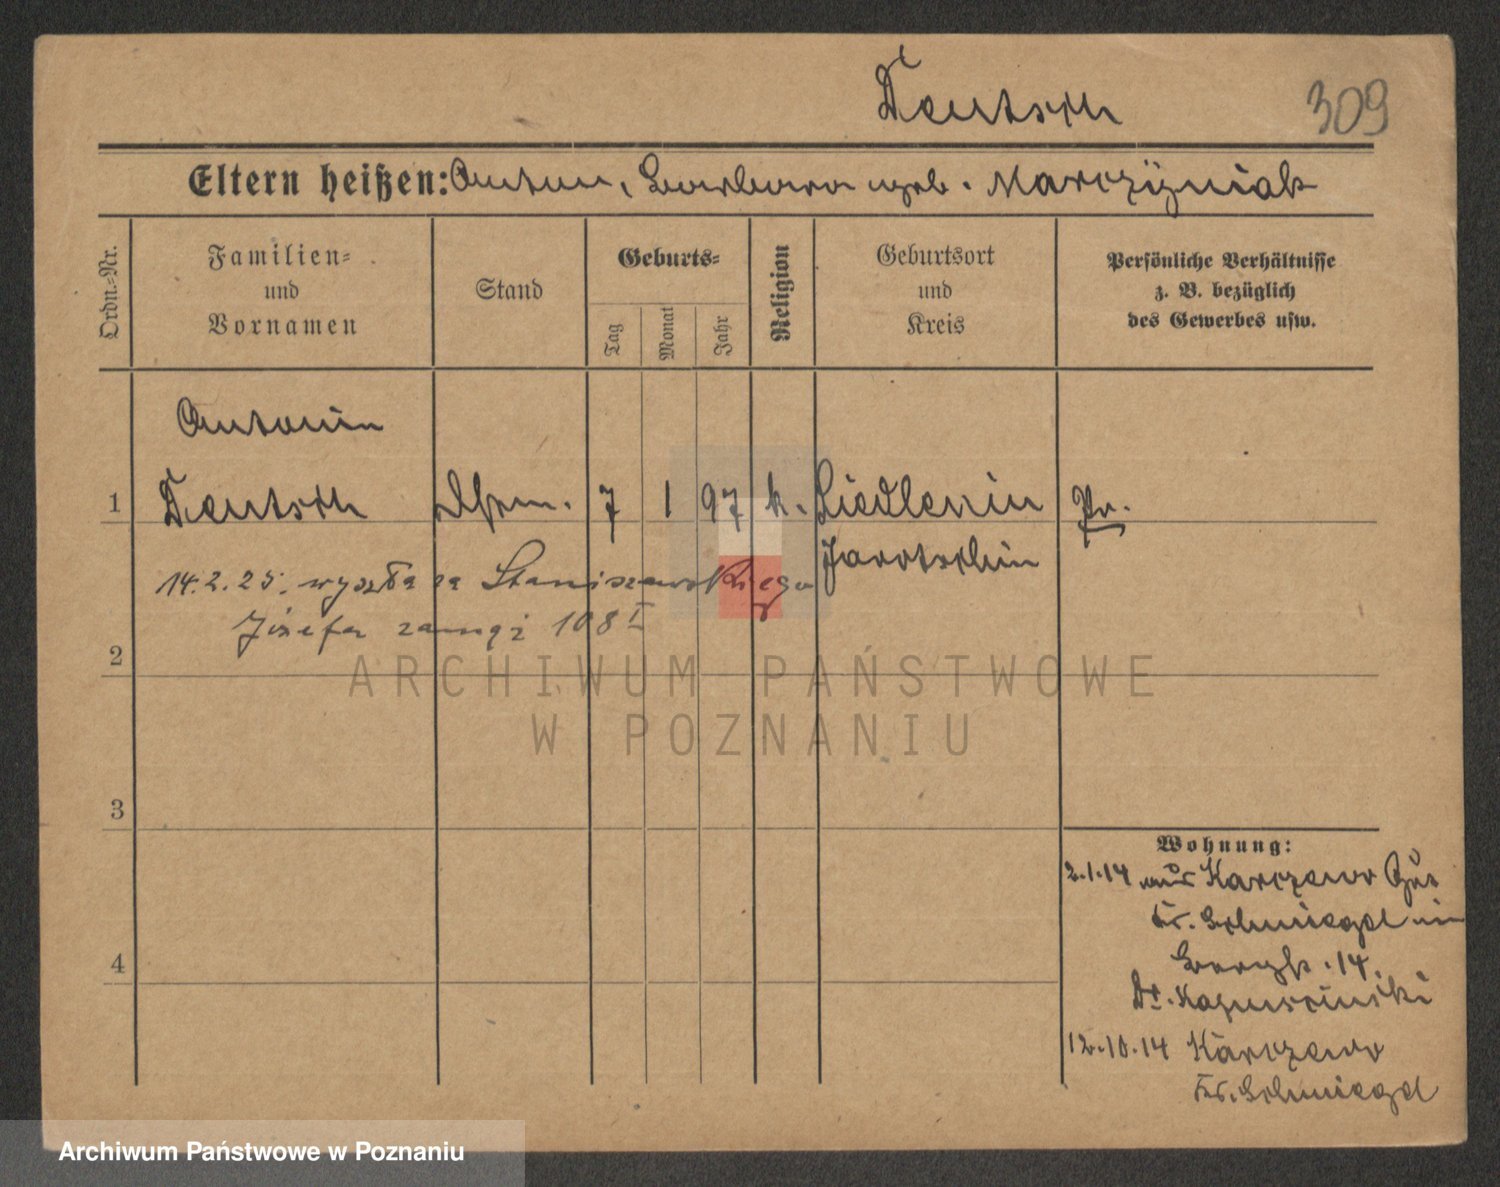 Deutsch 309
Eltern heißen: Anton, Barbara geb. Marczÿniak
Ordn.-Nr.
Familien-
und
Vornamen
Stand
Geburts-
Tag
Monat
Jahr
Religion
Geburtsort
und
Kreis
Persönliche Verhältnisse
z. B. bezüglich
des Gewerbes usw.
Antonin
1 Deutsch 7 1 97 k. Siedlemin Pr.
Jarotschin
14.2.25. wyszła za Staniszewskiego
Józefa zamąż 108 I
2
3
4
Wohnung:
2.1.14 aus Karczewo
Kr. Schmiegel in
14.
Dr. Kapuscinski
12.10.14 Karczewo
Kr. Schmiegel
ARCHIWUM PAŃSTWOWE
W POZNANIU
Archiwum Państwowe w Poznaniu